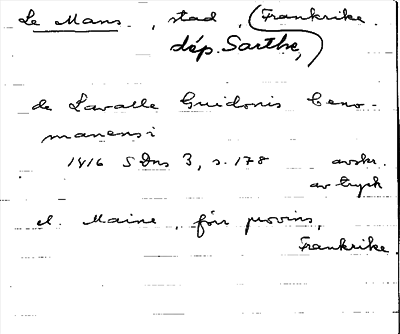 Le Mans, stad, (Frankrike.
dép. Sarthe,)
de Lavalle Guidonis Ceno-
manensi
1416 SDns 3, s. 178 avskr.
av tryck
el. Maine, förr provins,
Frankrike.